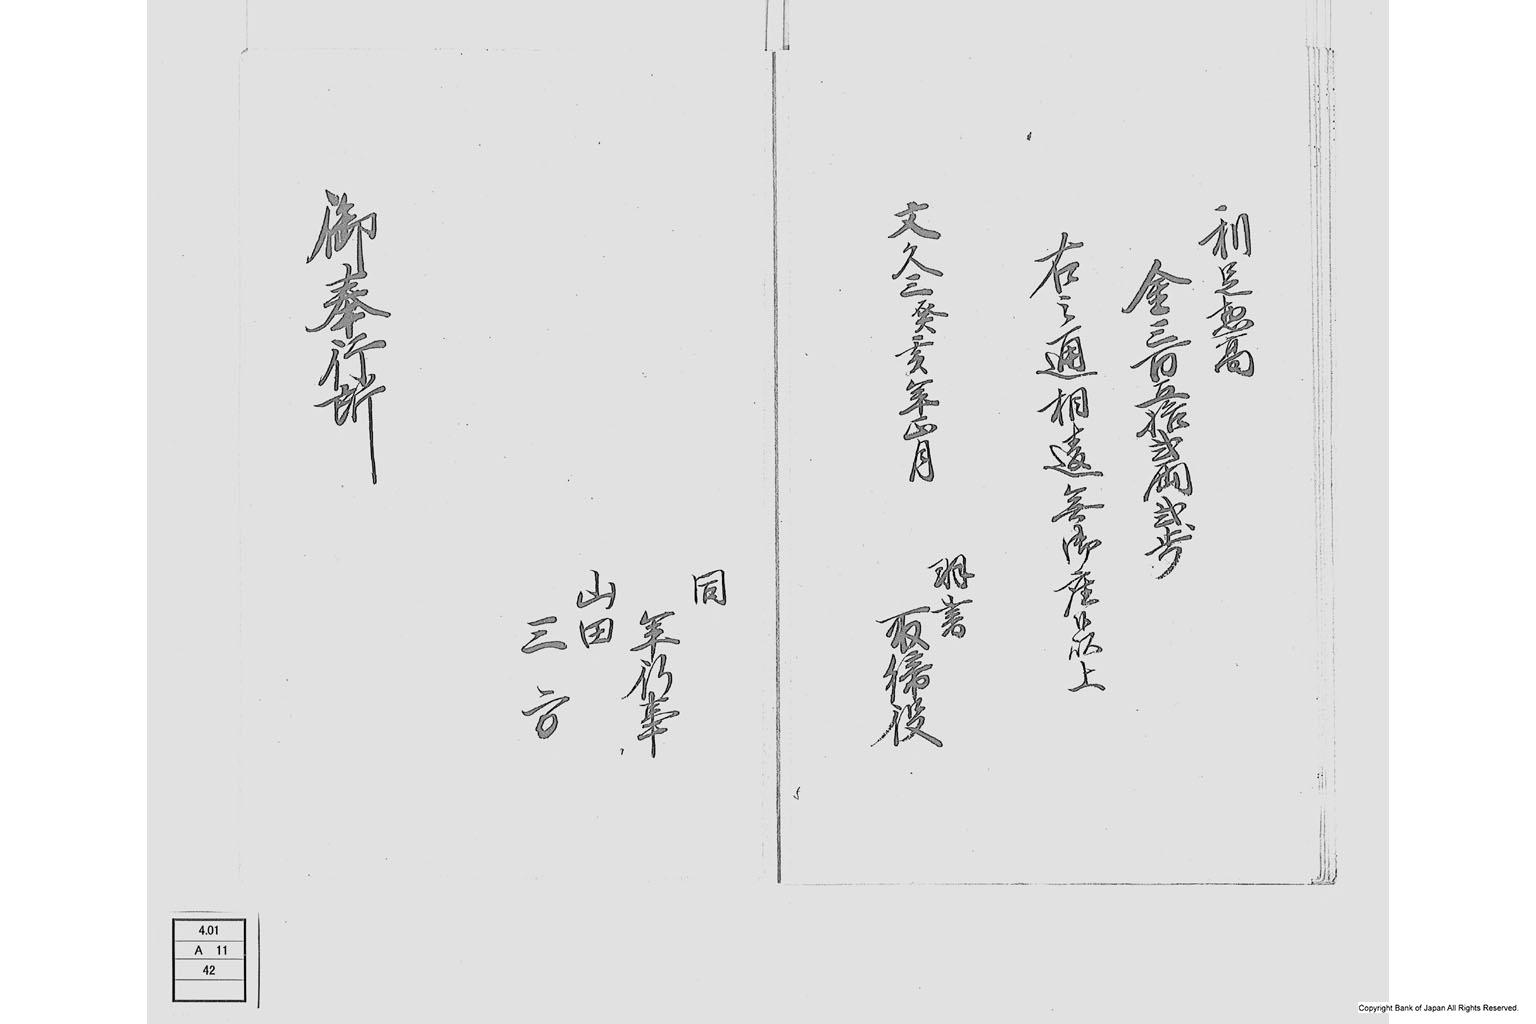 利足惣高
金三百五拾弐両弐歩
右之通相違無御座候以上
文久三癸亥年正月
羽書
取締役
同
年行事
山田
三方
御奉行所
4.01
A 11
42
Copyright Bank of Japan All Rights Reserved.